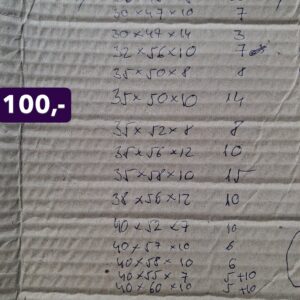 30×47×10 7
30×47×14 3
32×56×10 7
35×50×8 8
35×50×10 14
100,-
35×52×8 8
35×56×12 10
35×58×10 15
38×56×12 10
40×52×7 10
40×57×10 6
40×58×10 6
40×55×7 5+10
40×60×10 5+10